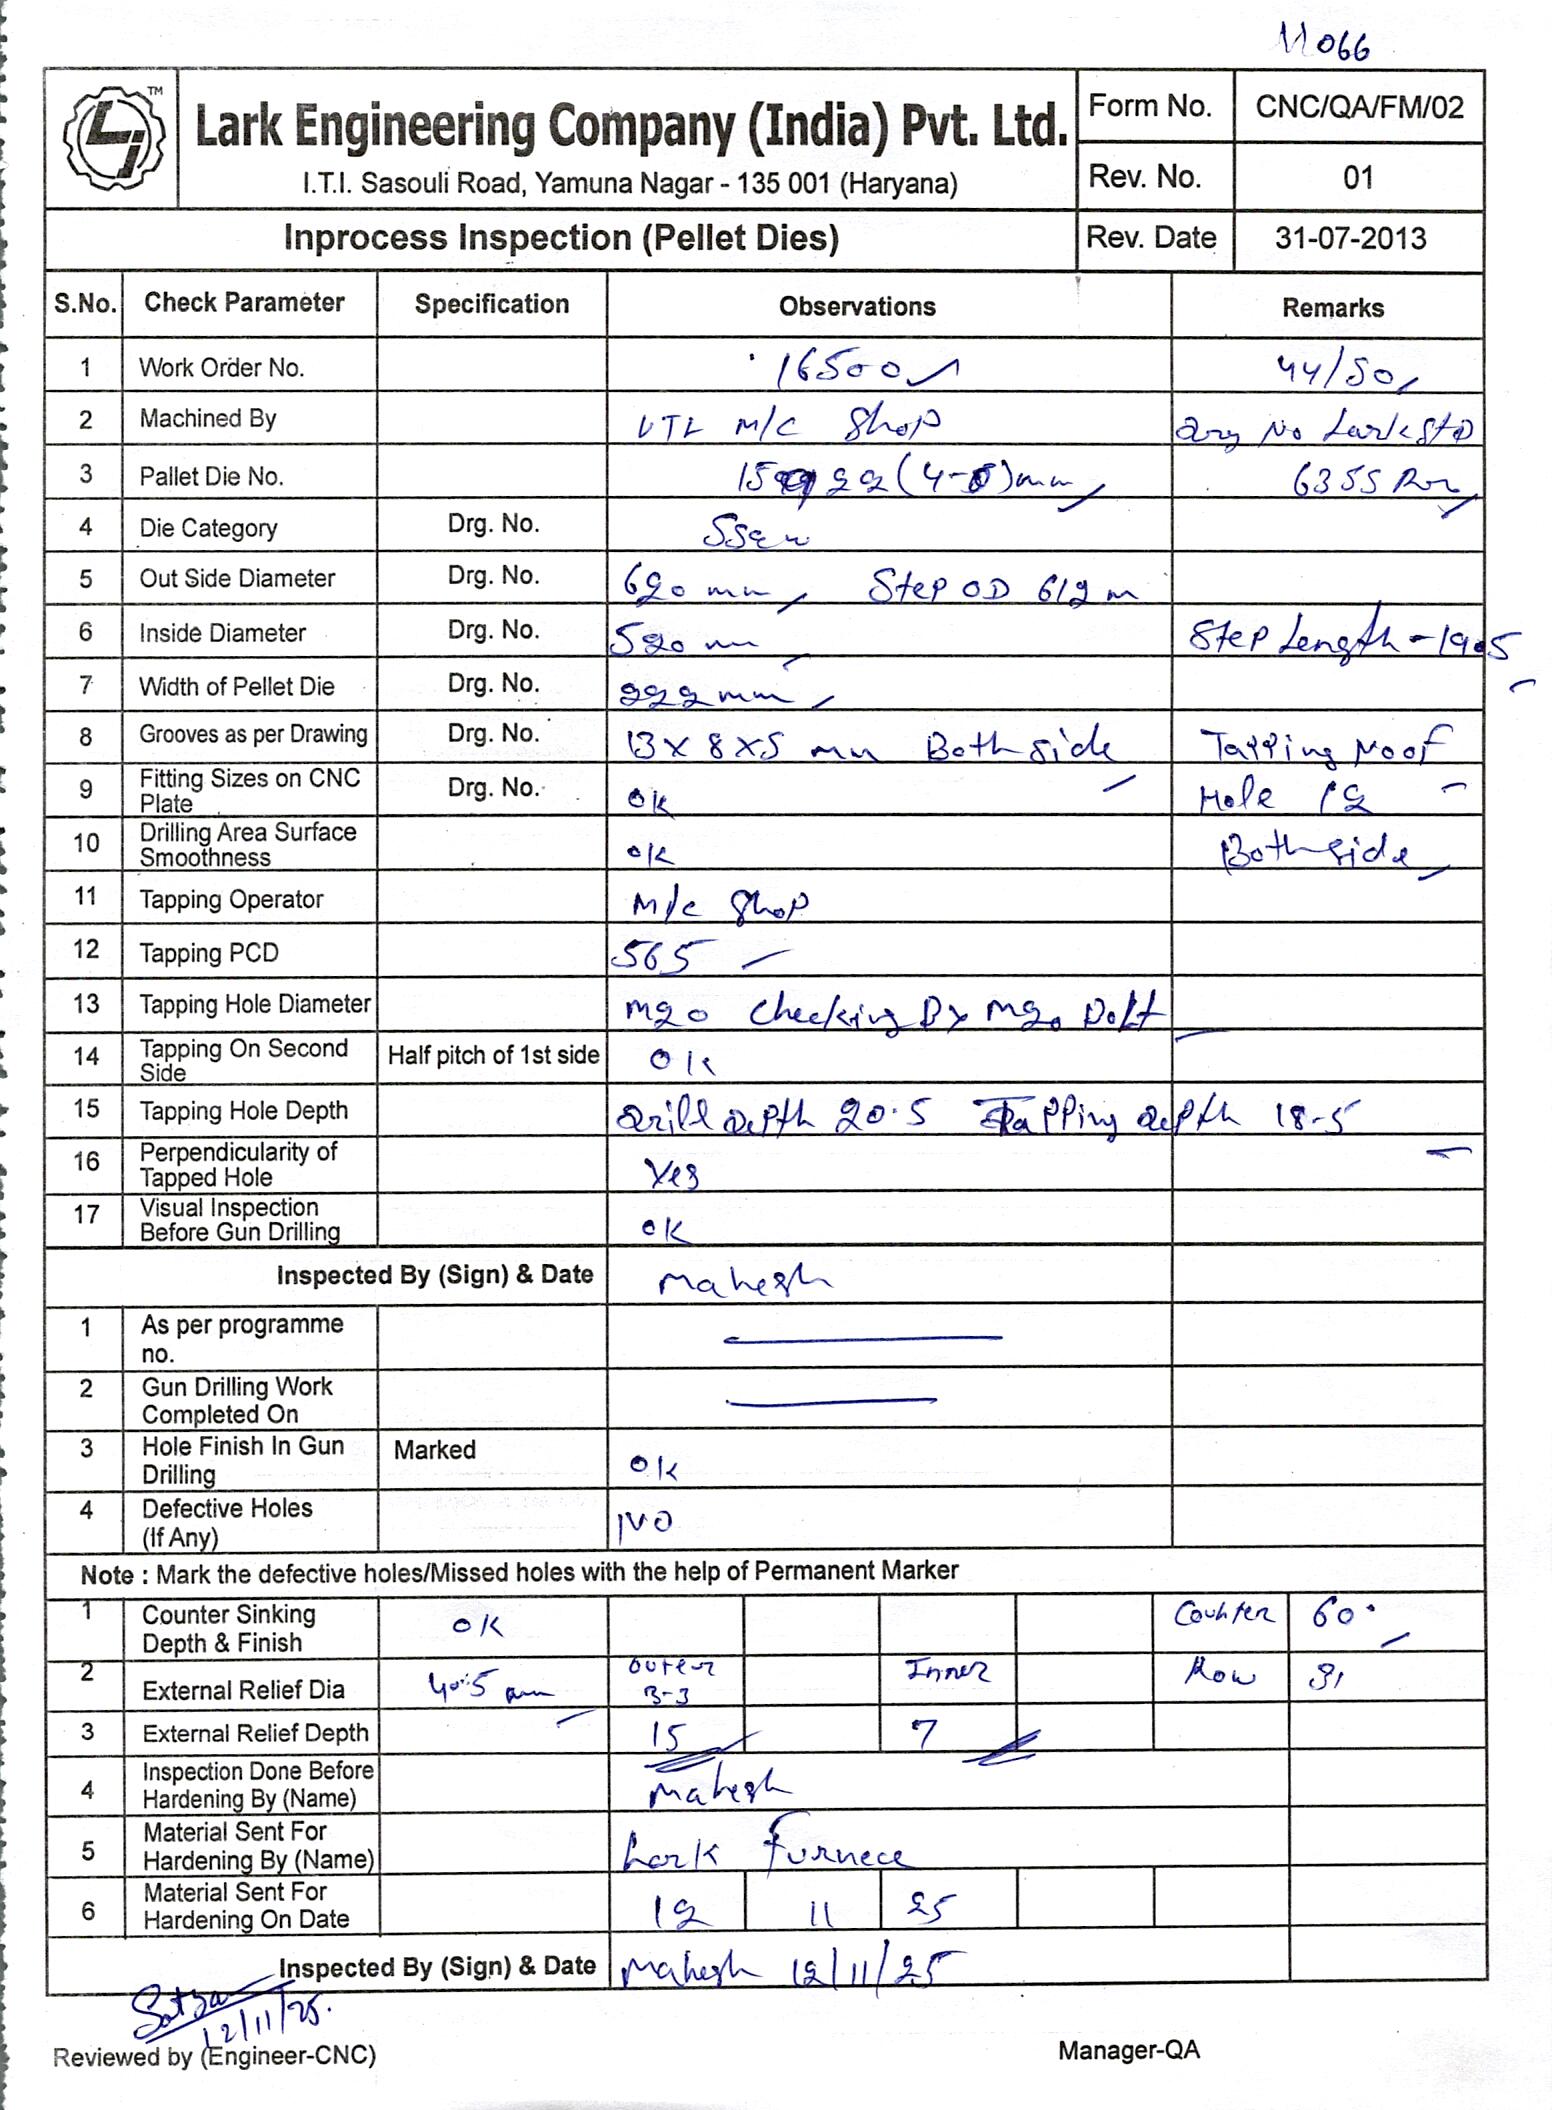 11066
Lark Engineering Company (India) Pvt. Ltd. TM
I.T.I. Sasouli Road, Yamuna Nagar - 135 001 (Haryana)
Form No. CNC/QA/FM/02
Rev. No. 01
Inprocess Inspection (Pellet Dies) Rev. Date 31-07-2013
S.No. Check Parameter Specification Observations Remarks
1 Work Order No. 16500 44/50
2 Machined By VTL M/C Shop Drg No Lark STD
3 Pallet Die No. 22 (4-5) mm 6355
4 Die Category Drg. No.
5 Out Side Diameter Drg. No. 620 mm Step OD 612 m
6 Inside Diameter Drg. No. 520 mm Step Length - 19.5
7 Width of Pellet Die Drg. No. 222 mm
8 Grooves as per Drawing Drg. No. 13 x 8 x 5 mm Both side Tapping No of
9 Fitting Sizes on CNC Plate Drg. No. OK Hole 12
10 Drilling Area Surface Smoothness OK Both side
11 Tapping Operator M/C Shop
12 Tapping PCD 565
13 Tapping Hole Diameter M20 Checking By M20 Bolt
14 Tapping On Second Side Half pitch of 1st side OK
15 Tapping Hole Depth Drill Depth 20.5 Tapping Depth 18.5
16 Perpendicularity of Tapped Hole Yes
17 Visual Inspection Before Gun Drilling OK
Inspected By (Sign) & Date Mahesh
1 As per programme no.
2 Gun Drilling Work Completed On
3 Hole Finish In Gun Drilling Marked OK
4 Defective Holes (If Any) NO
Note : Mark the defective holes/Missed holes with the help of Permanent Marker
1 Counter Sinking Depth & Finish OK Counter 60°
2 External Relief Dia 4.5 mm Outer 3-3 Inner Row 31
3 External Relief Depth 15 7
4 Inspection Done Before Hardening By (Name) Mahesh
5 Material Sent For Hardening By (Name) Lark Furnece
6 Material Sent For Hardening On Date 12 11 25
Inspected By (Sign) & Date Mahesh 12/11/25
12/11/25.
Reviewed by (Engineer-CNC) Manager-QA